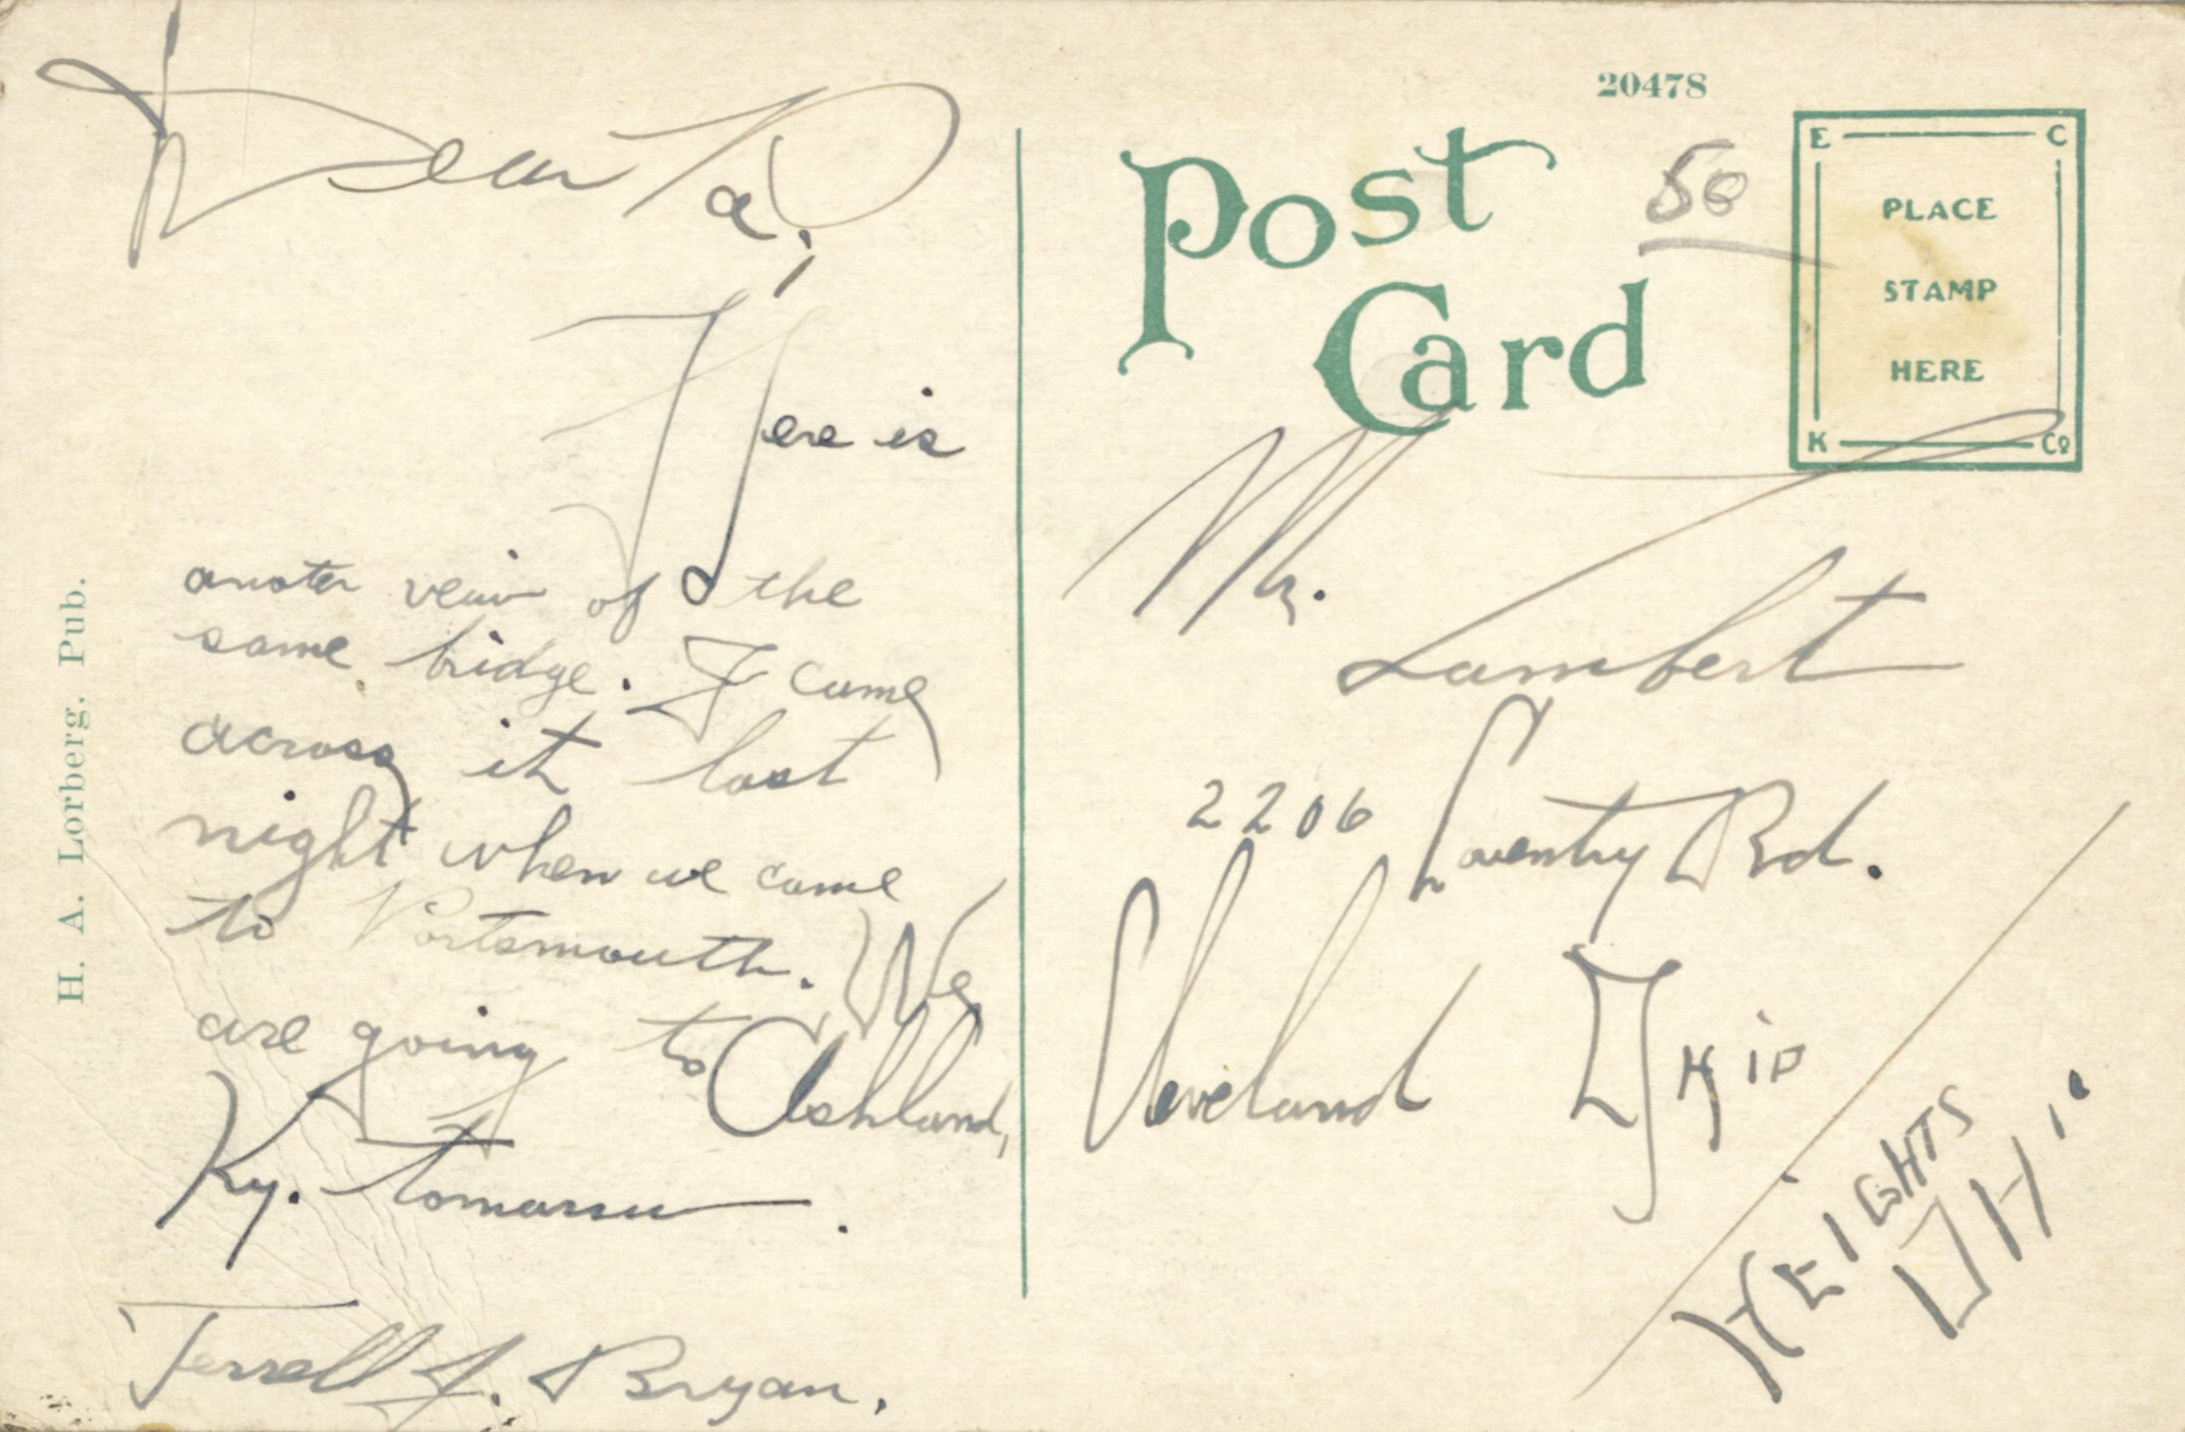 Dear Pa,
Here is
anoter veiw of the
same bridge. I came
across it last
night when we came
to Portsmouth. We
are going to Ashland,
Ky. tomarru.
Terrell J. Bryan.
H. A. Lorberg, Pub.
20478
Post
Card
50
E C
PLACE
STAMP
HERE
K Co
Mr.
Lambert
2206 Coventry Rd.
Cleveland OHio
HEIGHTS
OHio